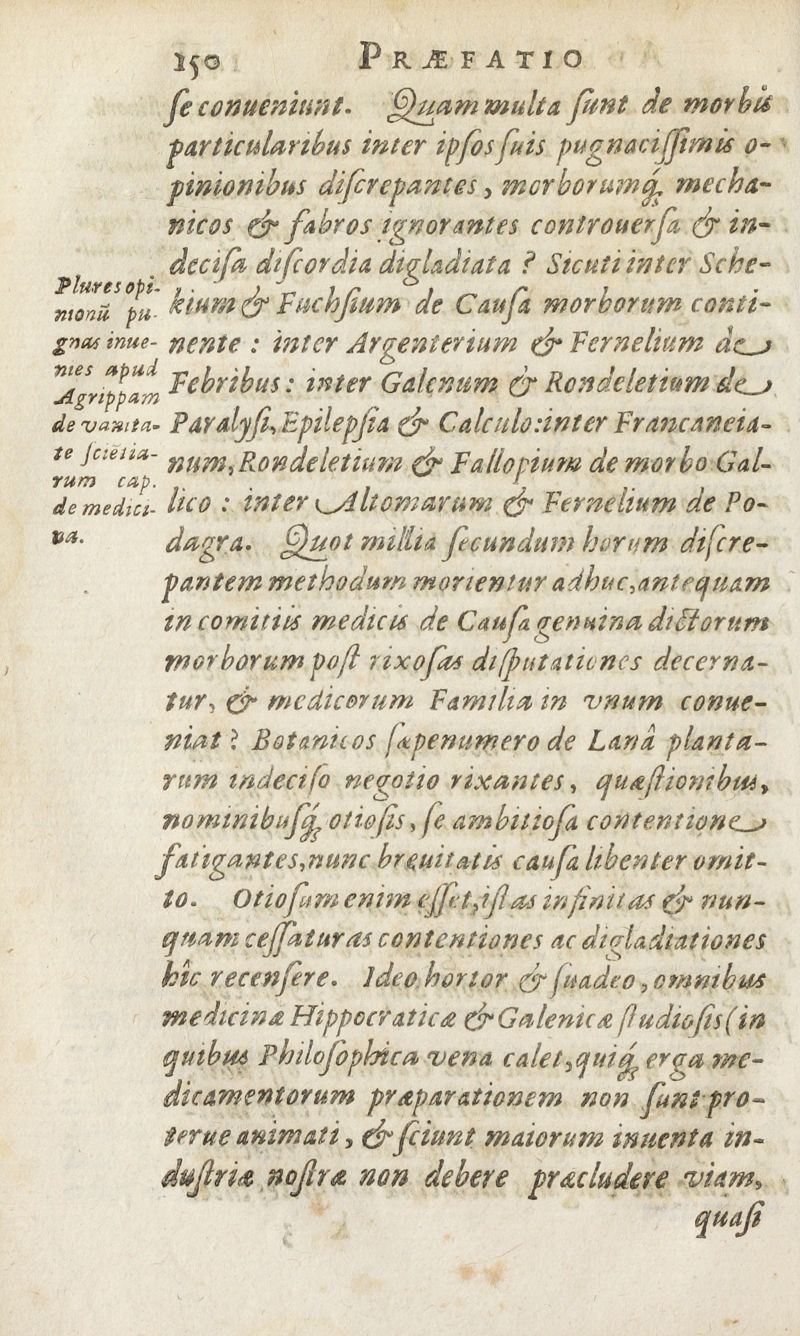 150 PRÆFATIO
ſe conueniunt. Quam multa ſunt de morbis
particularibus inter ipſos ſuis pugnaciſſimis o-
pinionibus diſcrepantes, morborumq́; mecha-
nicos & fabros ignorantes controuerſa & in-
deciſa diſcordia digladiata ? Sicuti inter Sche-
kium & Fuchſium de Cauſa morborum conti-
nente : inter Argenterium & Fernelium de
Febribus : inter Galenum & Rondeletium de
Paralyſi, Epilepſia & Calculo: inter Francaneia-
num, Rondeletium & Fallopium de morbo Gal-
lico : inter Altomarum & Fernelium de Po-
dagra. Quot millia ſecundum horum diſcre-
pantem methodum morientur adhuc, antequam
in comitiis medicis de Cauſa genuina dictorum
morborum poſt rixoſas diſputationes decerna-
tur, & medicorum Familia in vnum conue-
niat ? Botanicos ſæpenumero de Lanâ planta-
rum indeciſo negotio rixantes, quæſtionibus,
nominibuſq́; otioſis, ſe ambitioſa contentione
fatigantes, nunc breuitatis cauſa libenter omit-
to. Otioſum enim eſſet, iſtas infinitas & nun-
quam ceſſaturas contentiones ac digladiationes
hîc recenſere. Ideo hortor & ſuadeo, omnibus
medicinæ Hippocraticæ & Galenicæ ſtudioſis (in
quibus Philoſophica vena calet, quiq́; erga me-
dicamentorum præparationem non ſunt pro-
terue animati, & ſciunt maiorum inuenta in-
duſtriæ noſtræ non debere præcludere viam,
quaſi
Plures opi-
nionū pu-
gnas inue-
nies apud
Agrippam
de vanita-
te ſciētia-
rum cap.
de medici-
na.